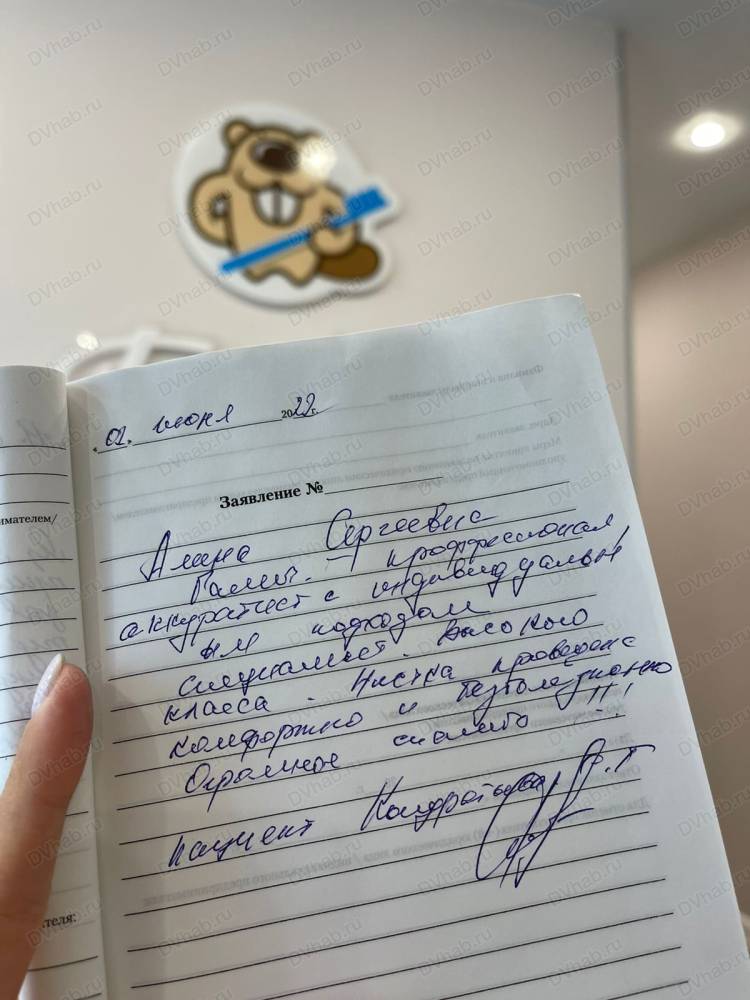 «01» июня 2022 г.
Заявление №
Алина Сергеевна
Галич. - профессионал,
аккуратист с индивидуальн
ым подходом
специалист. Высокого
класса. Чистка проведена
комфортно и безболезненно
Огромное спасибо !!!
пациент Кондратьева
имателем/
теля:
DVhab.ru